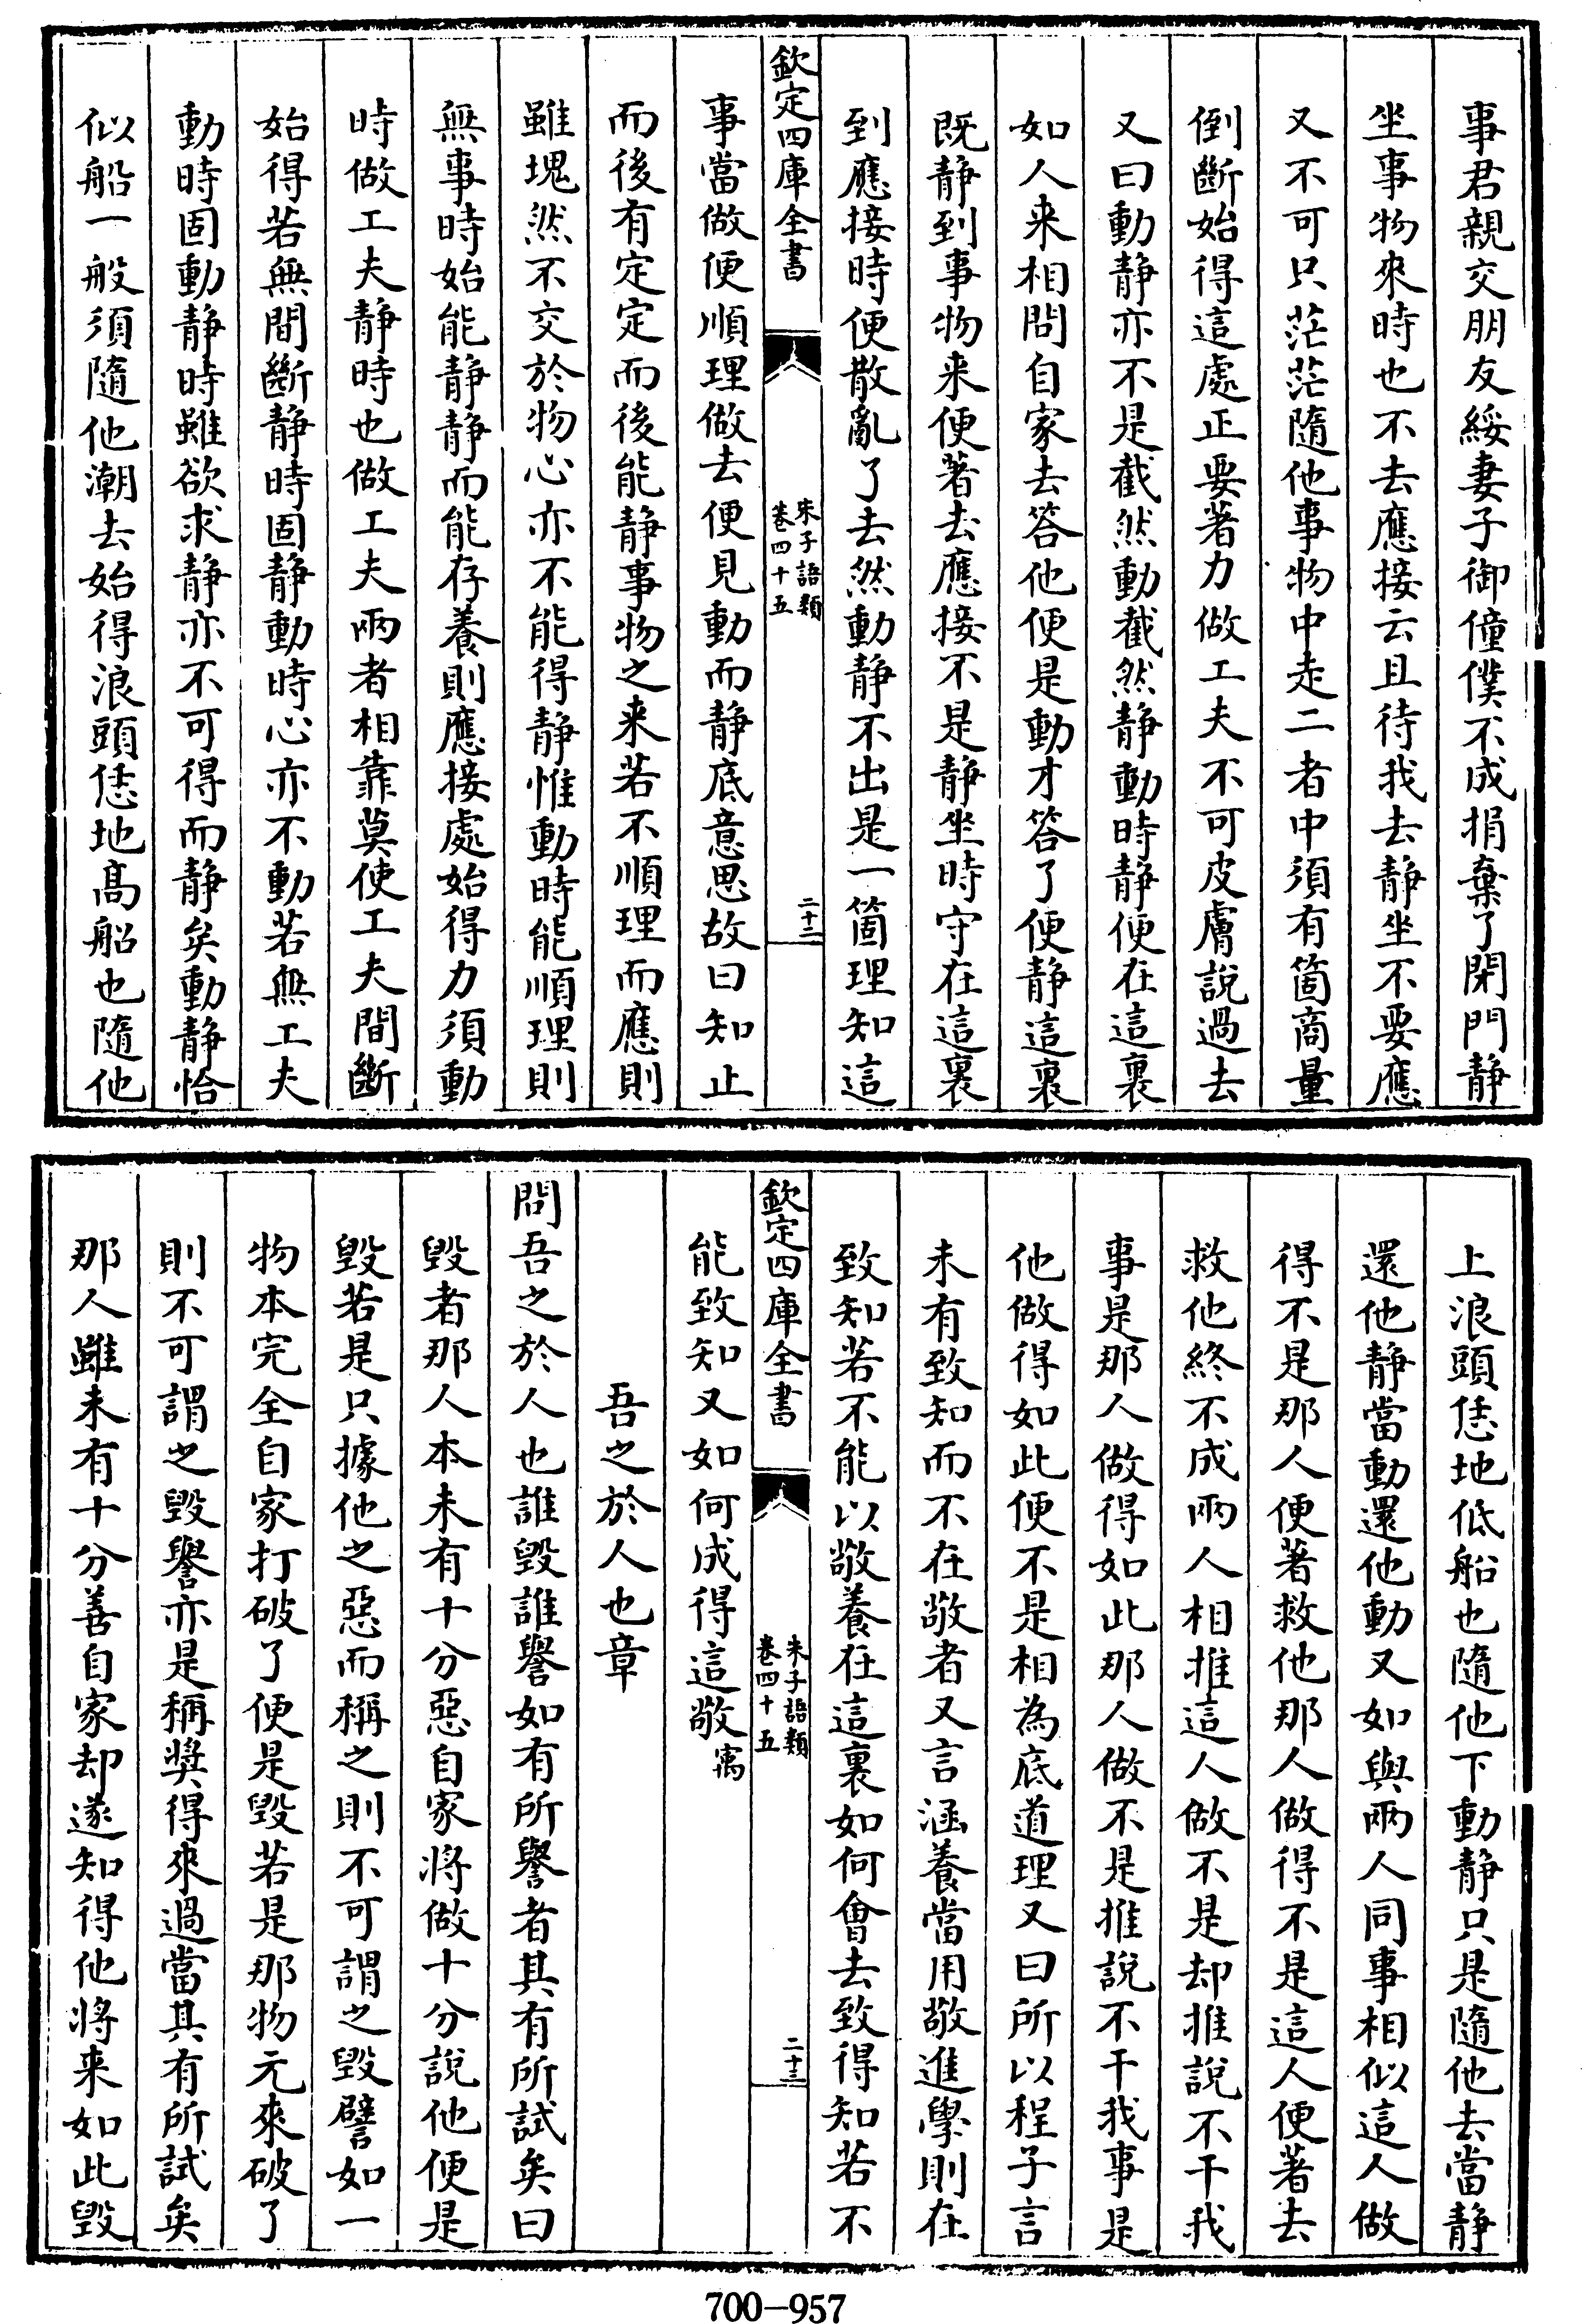 事君親交朋友綏妻子御僮僕不成捐棄了閉門静
坐事物來時也不去應接云且待我去静坐不要應
又不可只茫茫隨他事物中走二者中須有箇商量
倒斷始得這處正要著力做工夫不可皮膚說過去
又曰動静亦不是截然動截然静動時静便在這裏
如人来相問自家去答他便是動才答了便静這裏
既静到事物来便著去應接不是静坐時守在這裏
到應接時便散亂了去然動静不出是一箇理知這
欽定四庫全書
朱子語類
卷四十五
二十二
事當做便順理做去便見動而静底意思故曰知止
而後有定定而後能静事物之来若不順理而應則
雖塊然不交於物心亦不能得静惟動時能順理則
無事時始能静静而能存養則應接處始得力須動
時做工夫静時也做工夫兩者相靠莫使工夫間斷
始得若無間斷静時固静動時心亦不動若無工夫
動時固動静時雖欲求静亦不可得而静矣動静恰
似船一般須隨他潮去始得浪頭恁地高船也隨他
上浪頭恁地低船也隨他下動静只是隨他去當静
還他静當動還他動又如與兩人同事相似這人做
得不是那人便著救他那人做得不是這人便著去
救他終不成兩人相推這人做不是却推說不干我
事是那人做得如此那人做不是推說不干我事是
他做得如此便不是相為底道理又曰所以程子言
未有致知而不在敬者又言涵養當用敬進學則在
致知若不能以敬養在這裏如何會去致得知若不
欽定四庫全書
朱子語類
卷四十五
二十三
能致知又如何成得這敬㝢
吾之於人也章
問吾之於人也誰毁誰譽如有所譽者其有所試矣曰
毁者那人本未有十分惡自家將做十分說他便是
毁若是只據他之惡而稱之則不可謂之毁譬如一
物本完全自家打破了便是毁若是那物元來破了
則不可謂之毁譽亦是稱奬得來過當其有所試矣
那人雖未有十分善自家却遂知得他將来如此毁
700-957